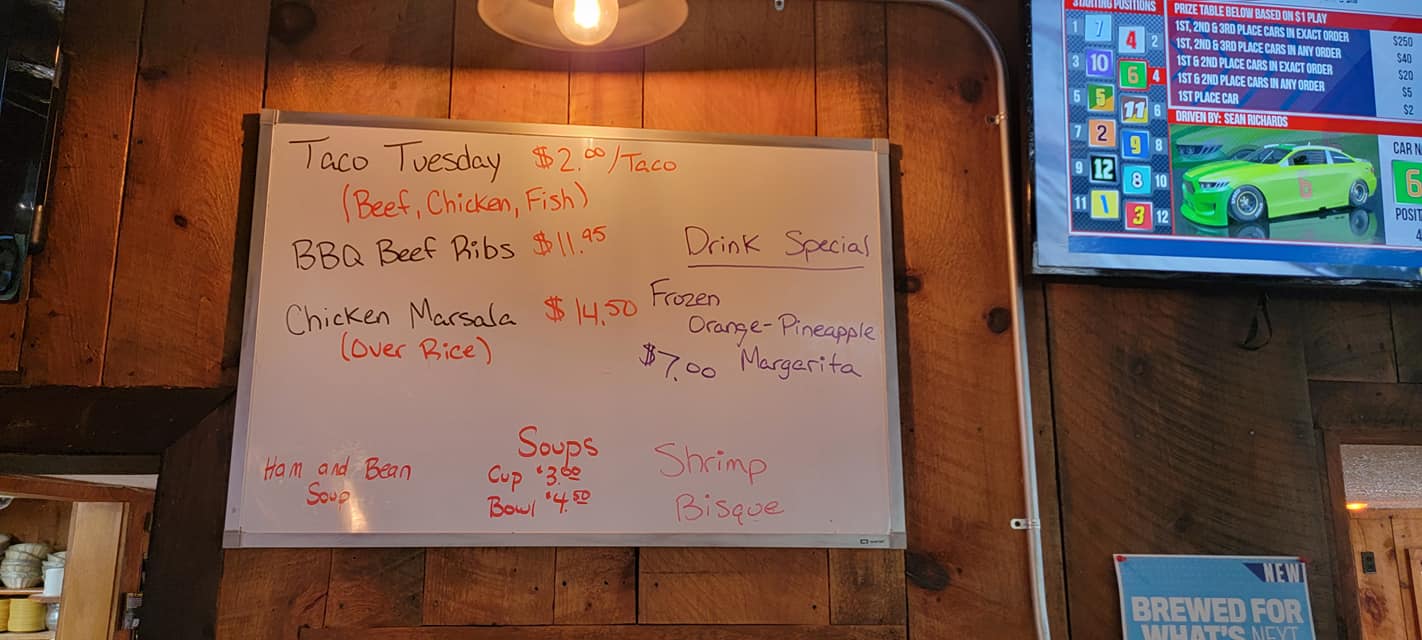 Taco Tuesday $2.00/Taco
(Beef, Chicken, Fish)
BBQ Beef Ribs $11.95
Chicken Marsala $14.50
(Over Rice)
Drink Special
Frozen
Orange-Pineapple
$7.00 Margarita
Soups
Ham and Bean
Soup
Cup $3.00
Bowl $4.50
Shrimp
Bisque
STARTING POSITIONS
1 7
4 2
3 10
6 4
5 5
11 6
7 2
9 8
9 12
8 10
11 1
3 12
PRIZE TABLE BELOW BASED ON $1 PLAY
1ST, 2ND & 3RD PLACE CARS IN EXACT ORDER $250
1ST, 2ND & 3RD PLACE CARS IN ANY ORDER $40
1ST & 2ND PLACE CARS IN EXACT ORDER $20
1ST & 2ND PLACE CARS IN ANY ORDER $5
1ST PLACE CAR $2
DRIVEN BY: SEAN RICHARDS
CAR N
6
POSIT
4
6
NEW
BREWED FOR
WHAT'S NEXT